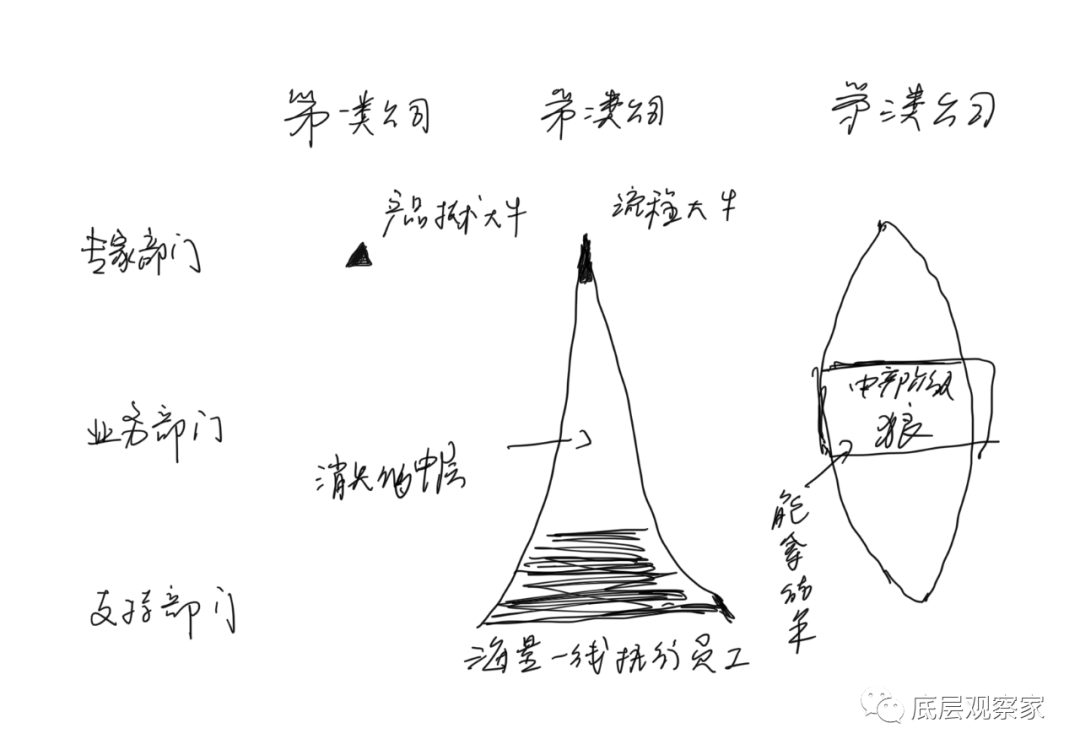 第一类公司 第二类公司 第三类公司
产品技术大牛 流程大牛
专家部门
中部阶级
狼
业务部门
消失的中层
能拿的年
支持部门
海量一线执行员工
底层观察家